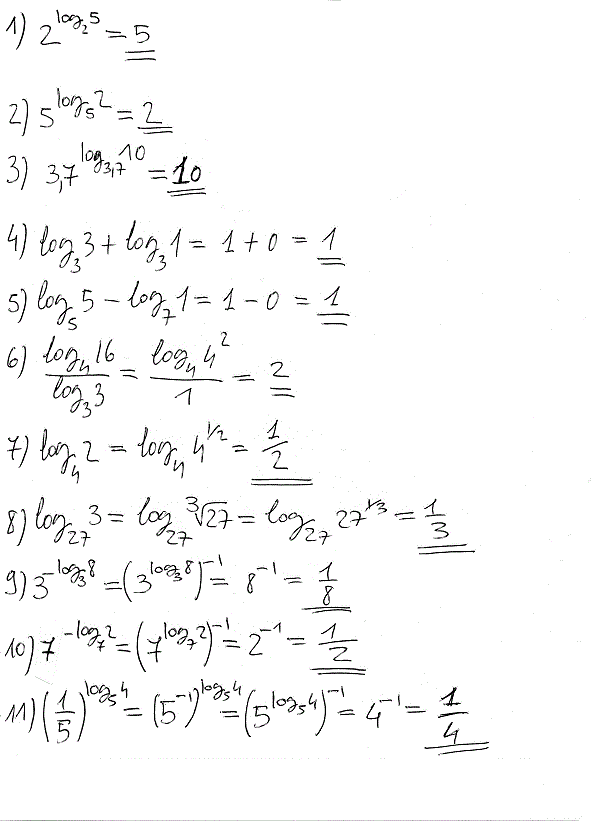 1) 2^{log_2 5} = 5
2) 5^{log_5 2} = 2
3) 3,7^{log_{3,7} 10} = 10
4) log_3 3 + log_3 1 = 1 + 0 = 1
5) log_5 5 - log_7 1 = 1 - 0 = 1
6) \frac{log_4 16}{log_3 3} = \frac{log_4 4^2}{1} = 2
7) log_4 2 = log_4 4^{1/2} = \frac{1}{2}
8) log_{27} 3 = log_{27} \sqrt[3]{27} = log_{27} 27^{1/3} = \frac{1}{3}
9) 3^{-log_3 8} = (3^{log_3 8})^{-1} = 8^{-1} = \frac{1}{8}
10) 7^{-log_7 2} = (7^{log_7 2})^{-1} = 2^{-1} = \frac{1}{2}
11) (\frac{1}{5})^{log_5 4} = (5^{-1})^{log_5 4} = (5^{log_5 4})^{-1} = 4^{-1} = \frac{1}{4}